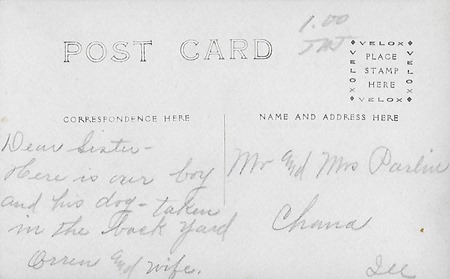 POST CARD
1.00
VELOX
VELOX PLACE STAMP HERE VELOX
VELOX
CORRESPONDENCE HERE
NAME AND ADDRESS HERE
Dear Sister-
Here is our boy
and his dog - taken
in the back yard
Orren and wife.
Mr and Mrs Parlin
Chana
Ill